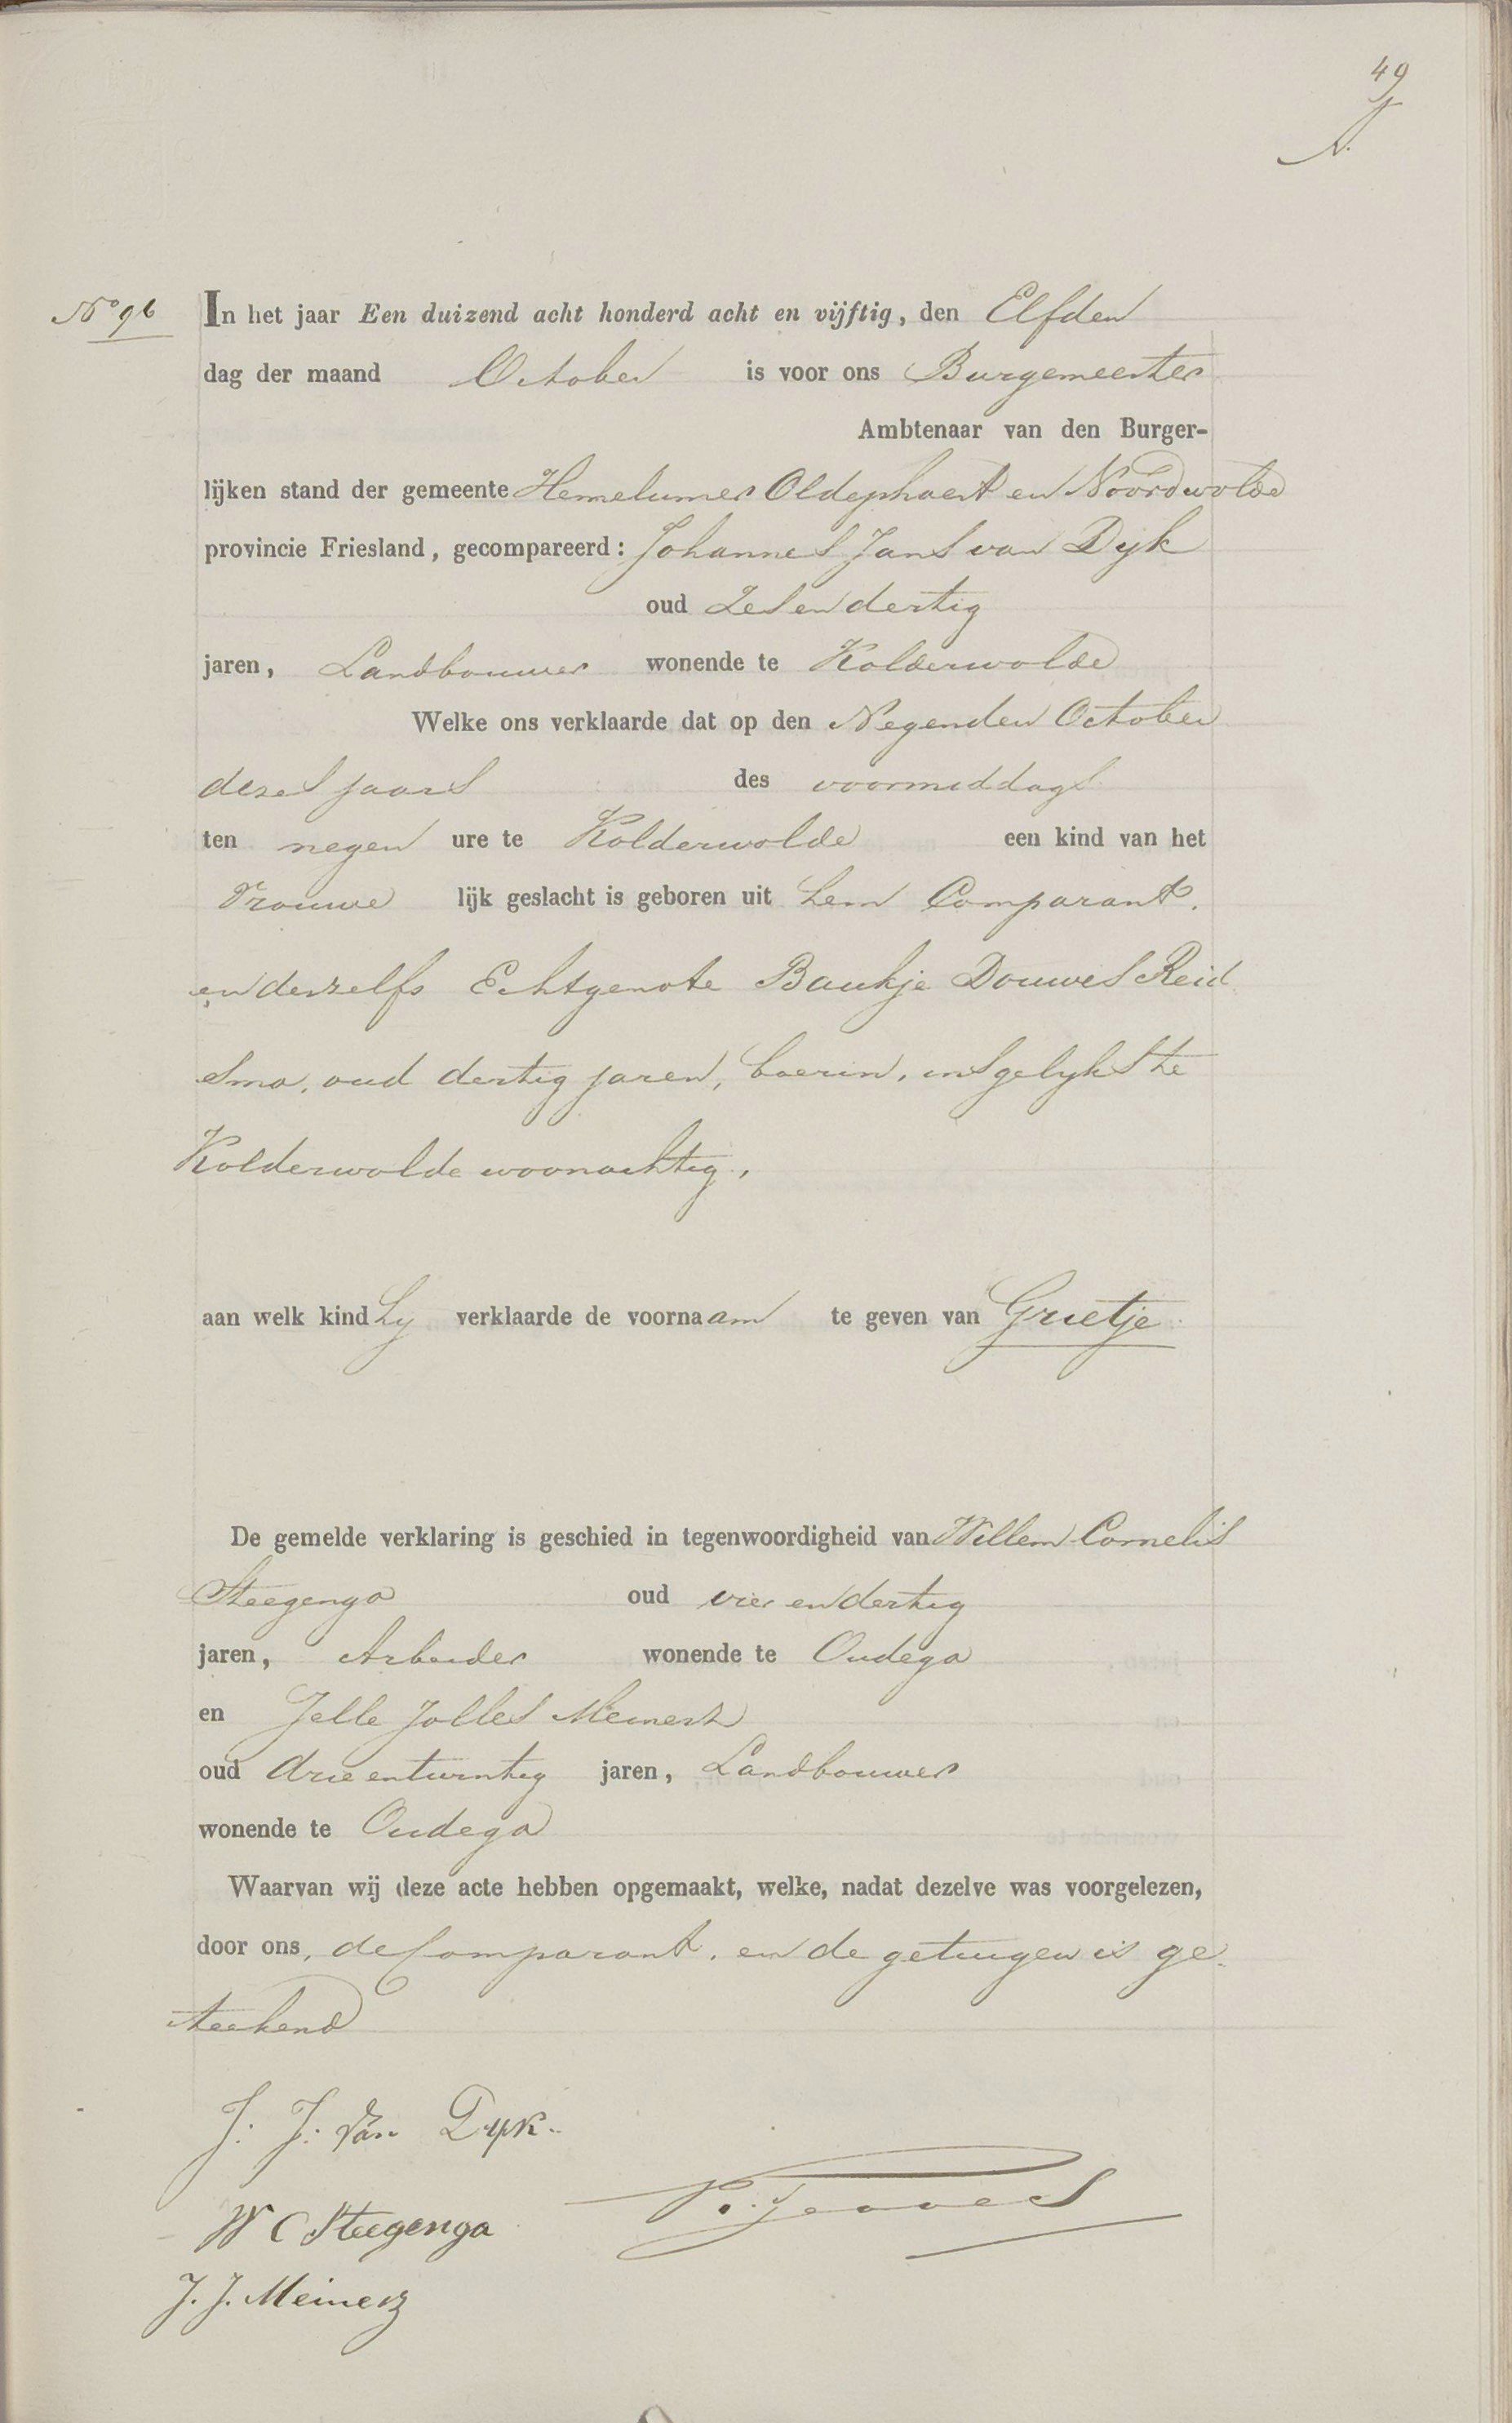 49
No 96
In het jaar Een duizend acht honderd acht en vijftig, den Elfden
dag der maand October is voor ons Burgemeester
Ambtenaar van den Burger-
lijken stand der gemeente Hemelumer Oldephaert en Noordwolde
provincie Friesland, gecompareerd: Johannes Jans van Dyk
oud Zes en dertig
jaren, Landbouwer wonende te Kolderwolde
Welke ons verklaarde dat op den Negenden October
dezes jaars des voormiddags
ten negen ure te Kolderwolde een kind van het
Vrouwe lijk geslacht is geboren uit hem Comparant,
en deszelfs Echtgenote Baukje Douwes Reid
sma, oud dertig jaren, boerin, insgelyks te
Kolderwolde woonachtig,
aan welk kind hy verklaarde de voornaam te geven van Grietje
De gemelde verklaring is geschied in tegenwoordigheid van Willem Cornelis
Steegenga oud vier en dertig
jaren, Arbeider wonende te Oudega
en Jelle Jolles Meinerz
oud drie en twintig jaren, Landbouwer
wonende te Oudega
Waarvan wij deze acte hebben opgemaakt, welke, nadat dezelve was voorgelezen,
door ons, de Comparant, en de getuigen is ge-
teekend
J: J: van Dyk.
W C Steegenga
J. J. Meinerz